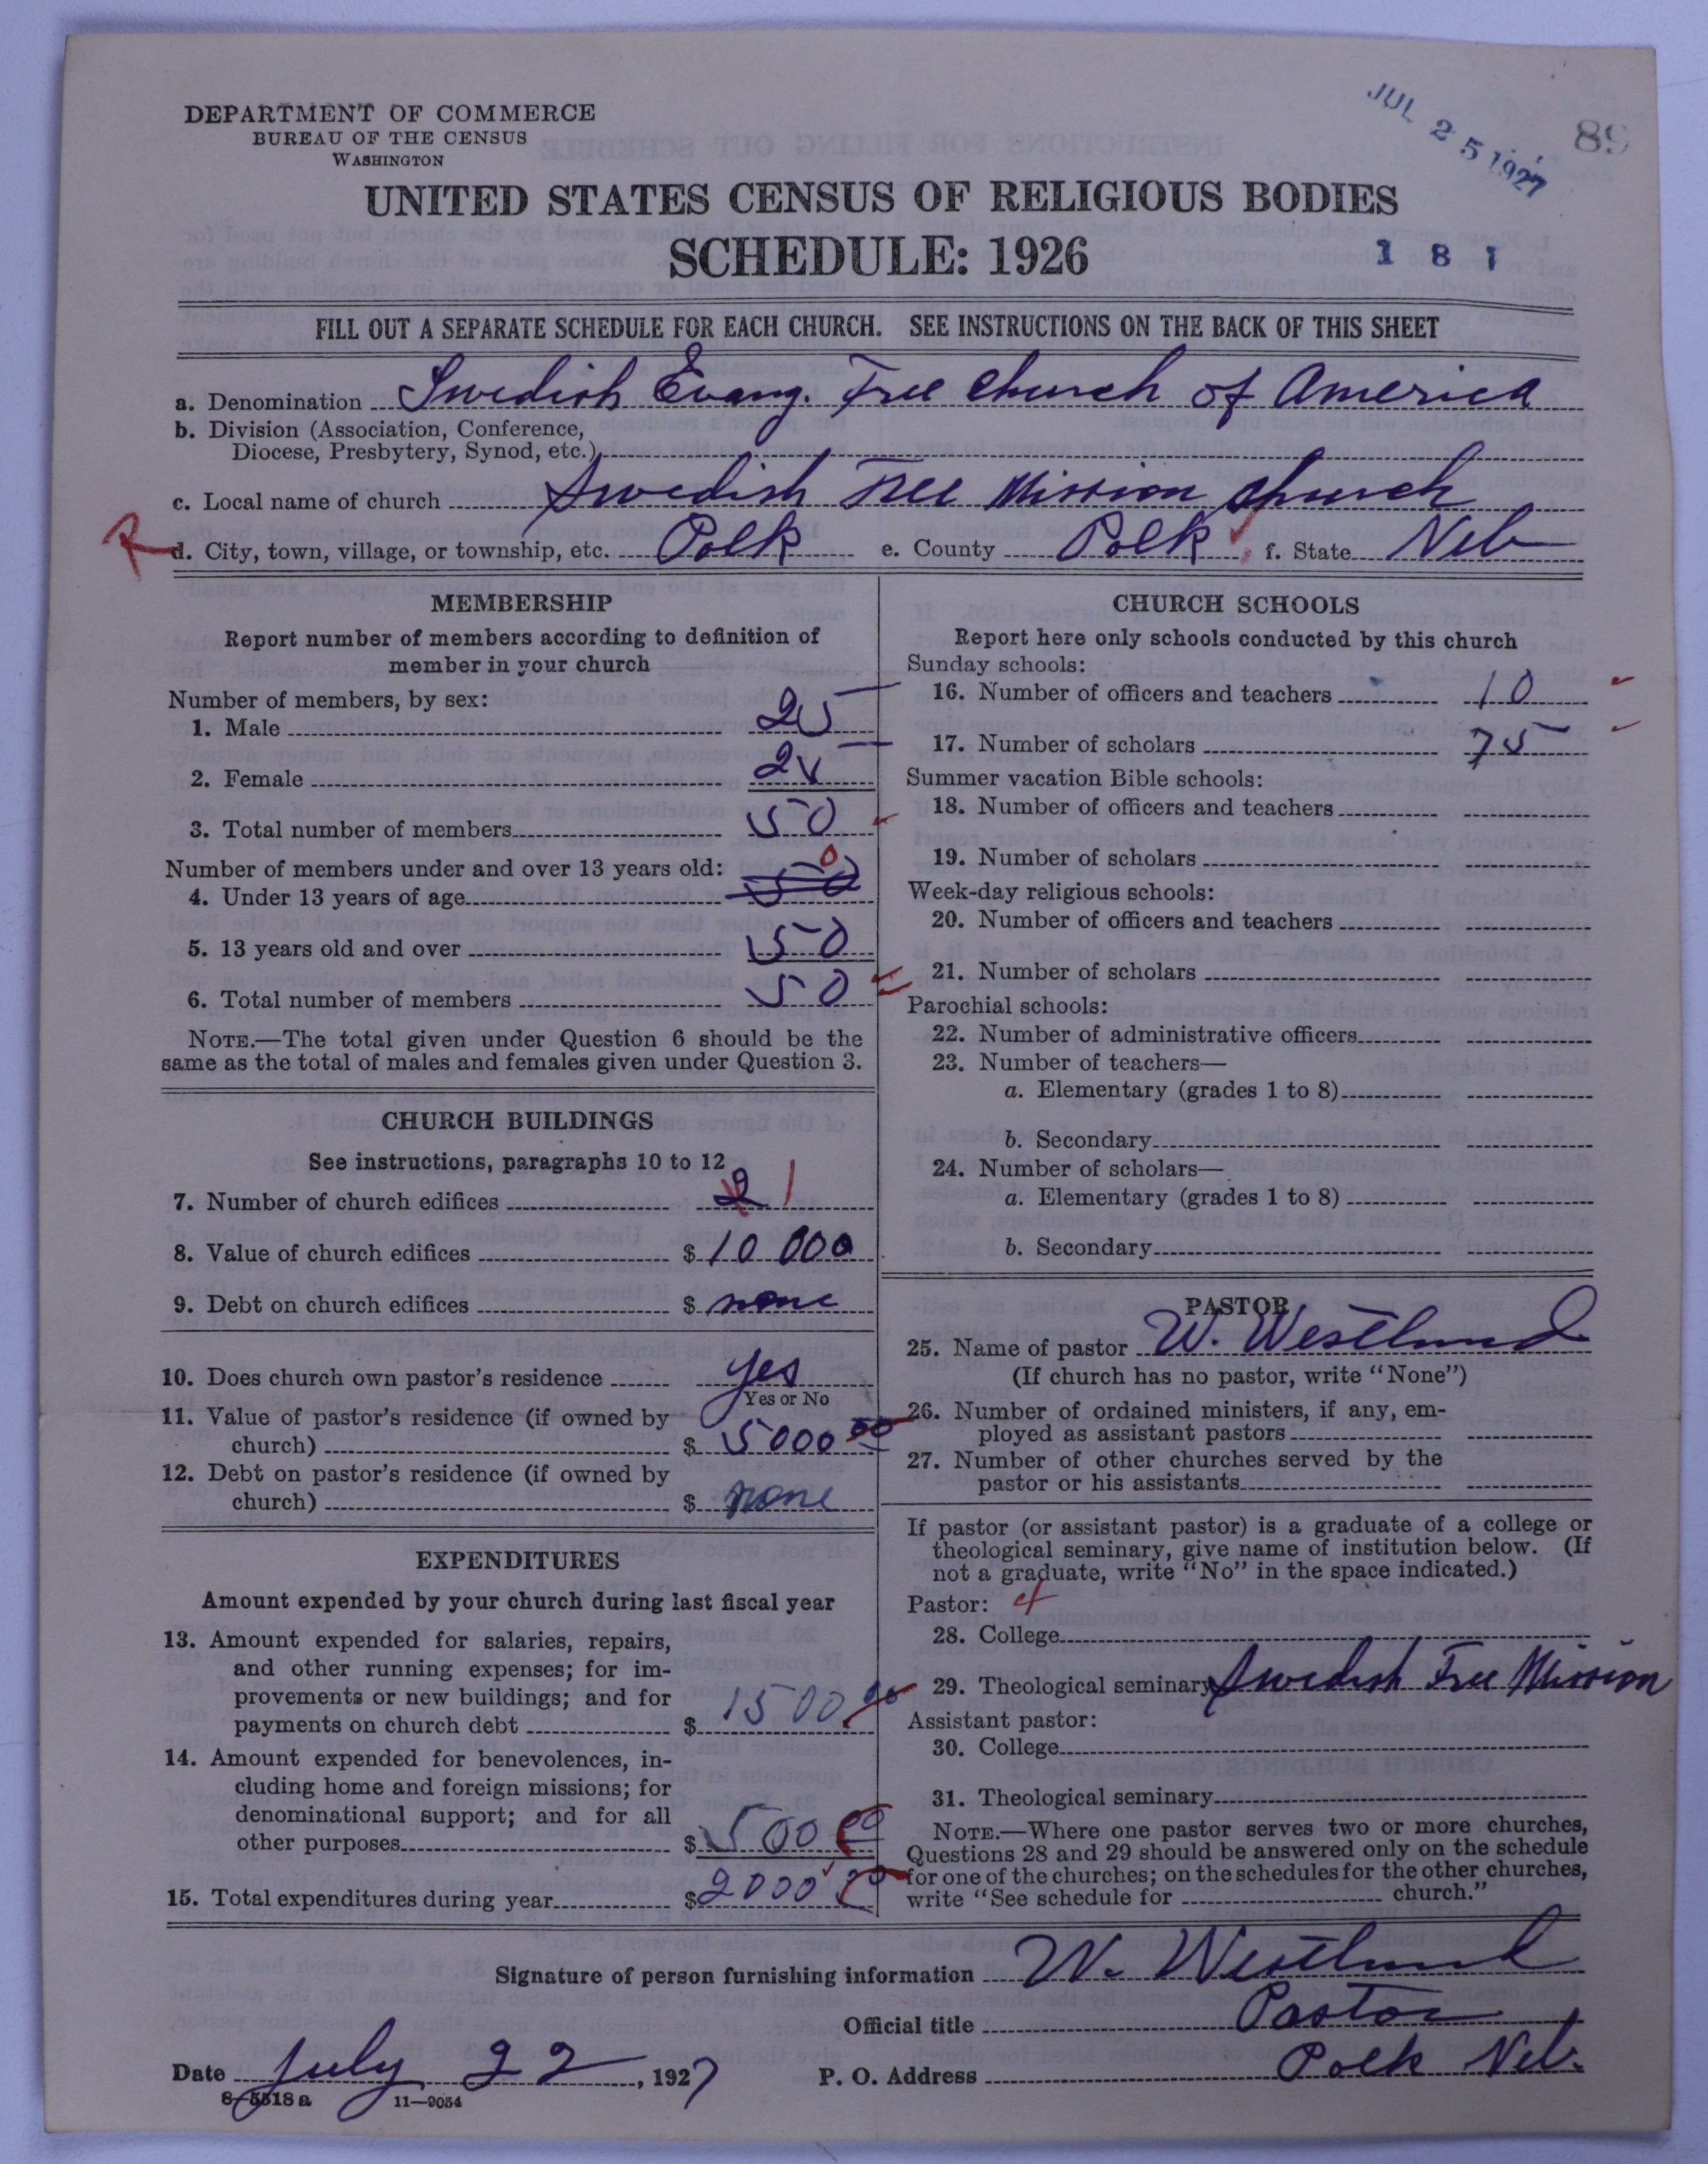 DEPARTMENT OF COMMERCE
BUREAU OF THE CENSUS
WASHINGTON
JUL 25 1927
89
UNITED STATES CENSUS OF RELIGIOUS BODIES
SCHEDULE: 1926
181
FILL OUT A SEPARATE SCHEDULE FOR EACH CHURCH. SEE INSTRUCTIONS ON THE BACK OF THIS SHEET
a. Denomination Swedish Evang. Free Church of America
b. Division (Association, Conference,
Diocese, Presbytery, Synod, etc.)
c. Local name of church Swedish Free Mission Church
d. City, town, village, or township, etc. Polk e. County Polk f. State Neb
MEMBERSHIP
Report number of members according to definition of
member in your church
Number of members, by sex:
1. Male 25
2. Female 25
3. Total number of members 50
Number of members under and over 13 years old: 0
4. Under 13 years of age 50
5. 13 years old and over 50
6. Total number of members 50
NOTE.—The total given under Question 6 should be the
same as the total of males and females given under Question 3.
CHURCH BUILDINGS
See instructions, paragraphs 10 to 12
7. Number of church edifices 2 1
8. Value of church edifices $ 10 000
9. Debt on church edifices $ none
10. Does church own pastor's residence yes
Yes or No
11. Value of pastor's residence (if owned by
church) $ 5000 00
12. Debt on pastor's residence (if owned by
church) $ none
EXPENDITURES
Amount expended by your church during last fiscal year
13. Amount expended for salaries, repairs,
and other running expenses; for im-
provements or new buildings; and for
payments on church debt $ 1500.00
14. Amount expended for benevolences, in-
cluding home and foreign missions; for
denominational support; and for all
other purposes $ 500 00
15. Total expenditures during year $ 2000 00
CHURCH SCHOOLS
Report here only schools conducted by this church
Sunday schools:
16. Number of officers and teachers 10
17. Number of scholars 75
Summer vacation Bible schools:
18. Number of officers and teachers
19. Number of scholars
Week-day religious schools:
20. Number of officers and teachers
21. Number of scholars
Parochial schools:
22. Number of administrative officers
23. Number of teachers—
a. Elementary (grades 1 to 8)
b. Secondary
24. Number of scholars—
a. Elementary (grades 1 to 8)
b. Secondary
PASTOR
25. Name of pastor W. Westlund
(If church has no pastor, write "None")
26. Number of ordained ministers, if any, em-
ployed as assistant pastors
27. Number of other churches served by the
pastor or his assistants
If pastor (or assistant pastor) is a graduate of a college or
theological seminary, give name of institution below. (If
not a graduate, write "No" in the space indicated.)
Pastor:
28. College
29. Theological seminary Swedish Free Mission
Assistant pastor:
30. College
31. Theological seminary
NOTE.—Where one pastor serves two or more churches,
Questions 28 and 29 should be answered only on the schedule
for one of the churches; on the schedules for the other churches,
write "See schedule for church."
Signature of person furnishing information W. Westlund
Official title Pastor
Date July 22, 1927 P. O. Address Polk Neb.
8-5518 a 11-9054